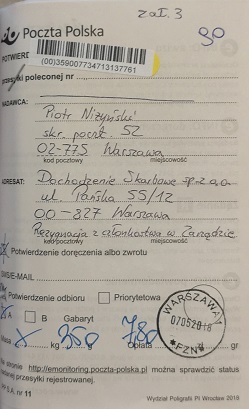 zał. 3
Poczta Polska
90
POTWIE
(00)359007734713137761
przesyłki poleconej nr
NADAWCA:
Piotr Niżyński
skr. poczt. 52
02-775 Warszawa
kod pocztowy miejscowość
ADRESAT: Dochodzenie Skarbowe sp. z o.o.
ul. Pańska 55/12
00-827 Warszawa
Rezygnacja z członkostwa w Zarządzie
kod pocztowy miejscowość
Potwierdzenie doręczenia albo zwrotu
SMS/E-MAIL
Potwierdzenie odbioru Priorytetowa
A B Gabaryt
x kg 350 g Opłata 780 zł
WARSZAWA
07052018
*FZN*
Na stronie http://emonitoring.poczta-polska.pl można sprawdzić status
przesyłki rejestrowanej.
PP S.A. nr 11 Wydział Poligrafii PI Wrocław 2018